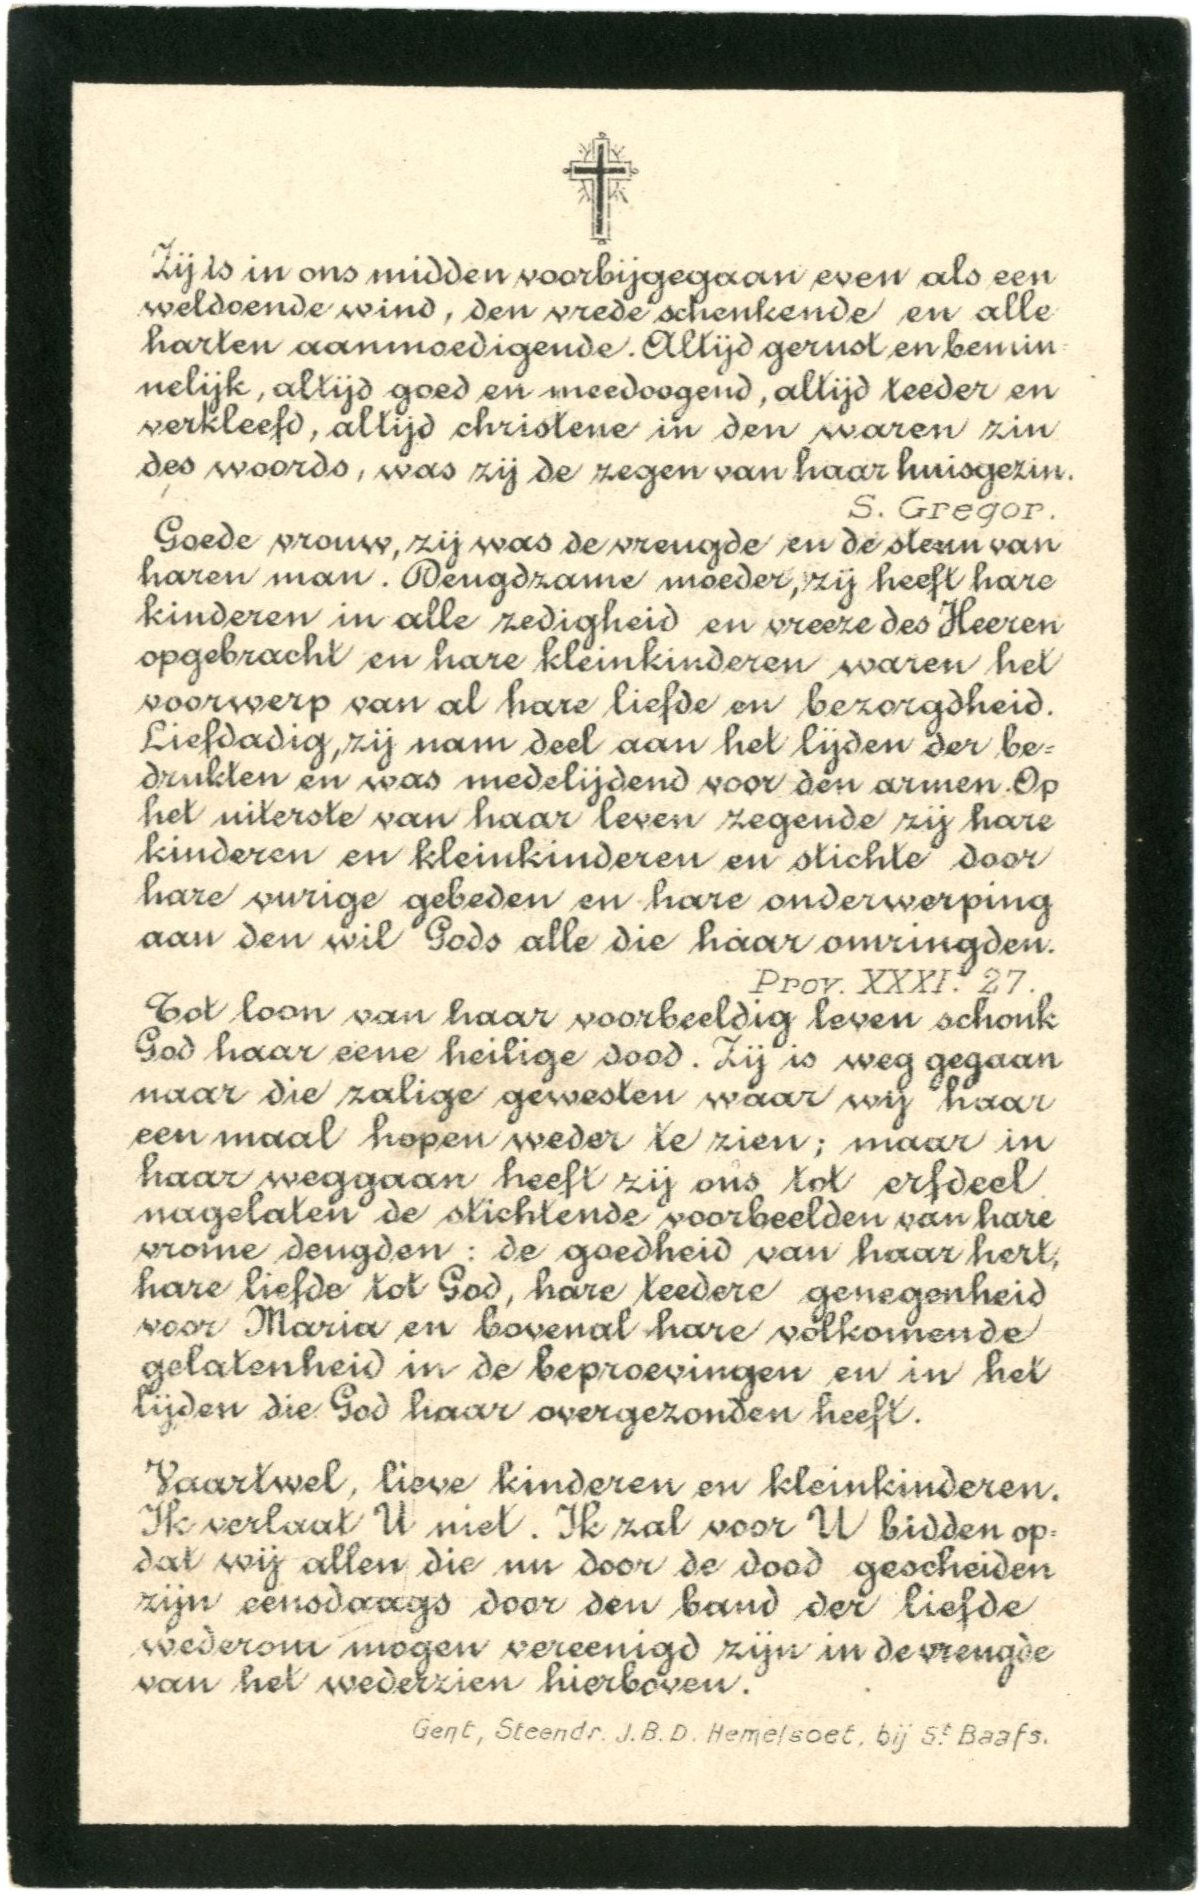 Zij is in ons midden voorbijgegaan even als een
weldoende wind, den vrede schenkende en alle
harten aanmoedigende. Altijd gerust en bemin-
nelijk, altijd goed en meedoogend, altijd teeder en
verkleefd, altijd christene in den waren zin
des woords, was zij de zegen van haar huisgezin.
S. Gregor.
Goede vrouw, zij was de vreugde en de steun van
haren man. Deugdzame moeder, zij heeft hare
kinderen in alle zedigheid en vreeze des Heeren
opgebracht en hare kleinkinderen waren het
voorwerp van al hare liefde en bezorgdheid.
Liefdadig, zij nam deel aan het lijden der be-
drukten en was medelijdend voor den armen. Op
het uiterste van haar leven zegende zij hare
kinderen en kleinkinderen en stichte door
hare vurige gebeden en hare onderwerping
aan den wil Gods alle die haar omringden.
Prov. XXXI. 27.
Tot loon van haar voorbeeldig leven schonk
God haar eene heilige dood. Zij is weg gegaan
naar die zalige gewesten waar wij haar
een maal hopen weder te zien; maar in
haar weggaan heeft zij ons tot erfdeel
nagelaten de stichtende voorbeelden van hare
vrome deugden: de goedheid van haar hert,
hare liefde tot God, hare teedere genegenheid
voor Maria en bovenal hare volkomende
gelatenheid in de beproevingen en in het
lijden die God haar overgezonden heeft.
Vaartwel, lieve kinderen en kleinkinderen.
Ik verlaat U niet. Ik zal voor U bidden op-
dat wij allen die nu door de dood gescheiden
zijn eensdaags door den band der liefde
wederom mogen vereenigd zijn in de vreugde
van het wederzien hierboven.
Gent, Steendr. J.B.D. Hemelsoet, bij St Baafs.